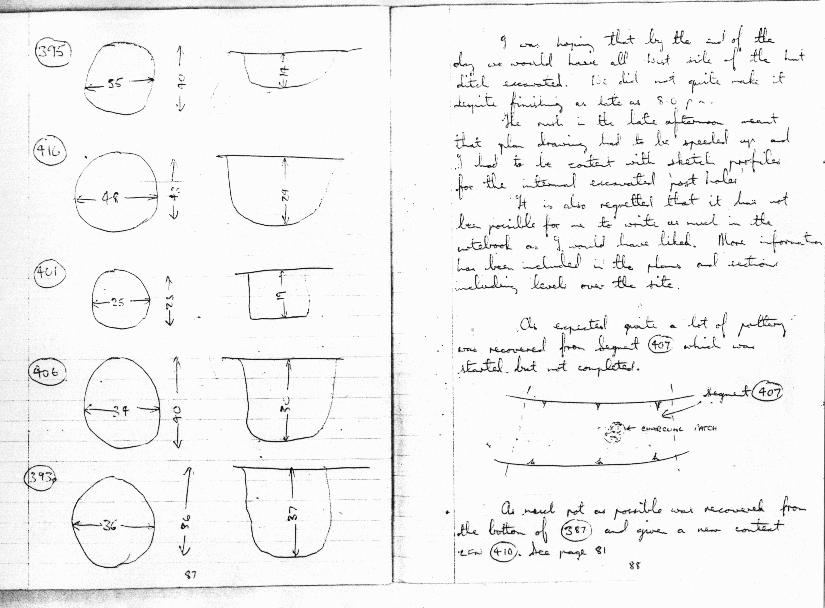 395
35
40
14
416
48
43
29
401
25
23
19
406
34
40
30
393
36
36
37
87
I was hoping that by the end of the
day we would have all West side of the hut
ditch excavated. We did not quite make it
despite finishing as late as 8.0 p.m.
The rush in the late afternoon meant
that plan drawing had to be speeded up and
I had to be content with sketch profiles
for the internal excavated 'post holes'
It is also regretted that it has not
been possible for me to write as much in the
notebook as I would have liked. More information
has been included in the plans and sections
including levels over the site.
As expected quite a lot of pottery
was recovered from Segment 407 which was
started but not completed.
Segment 407
CHARCOAL PATCH
As much pot as possible was recovered from
the bottom of 387 and given a new context
410. See page 81
88